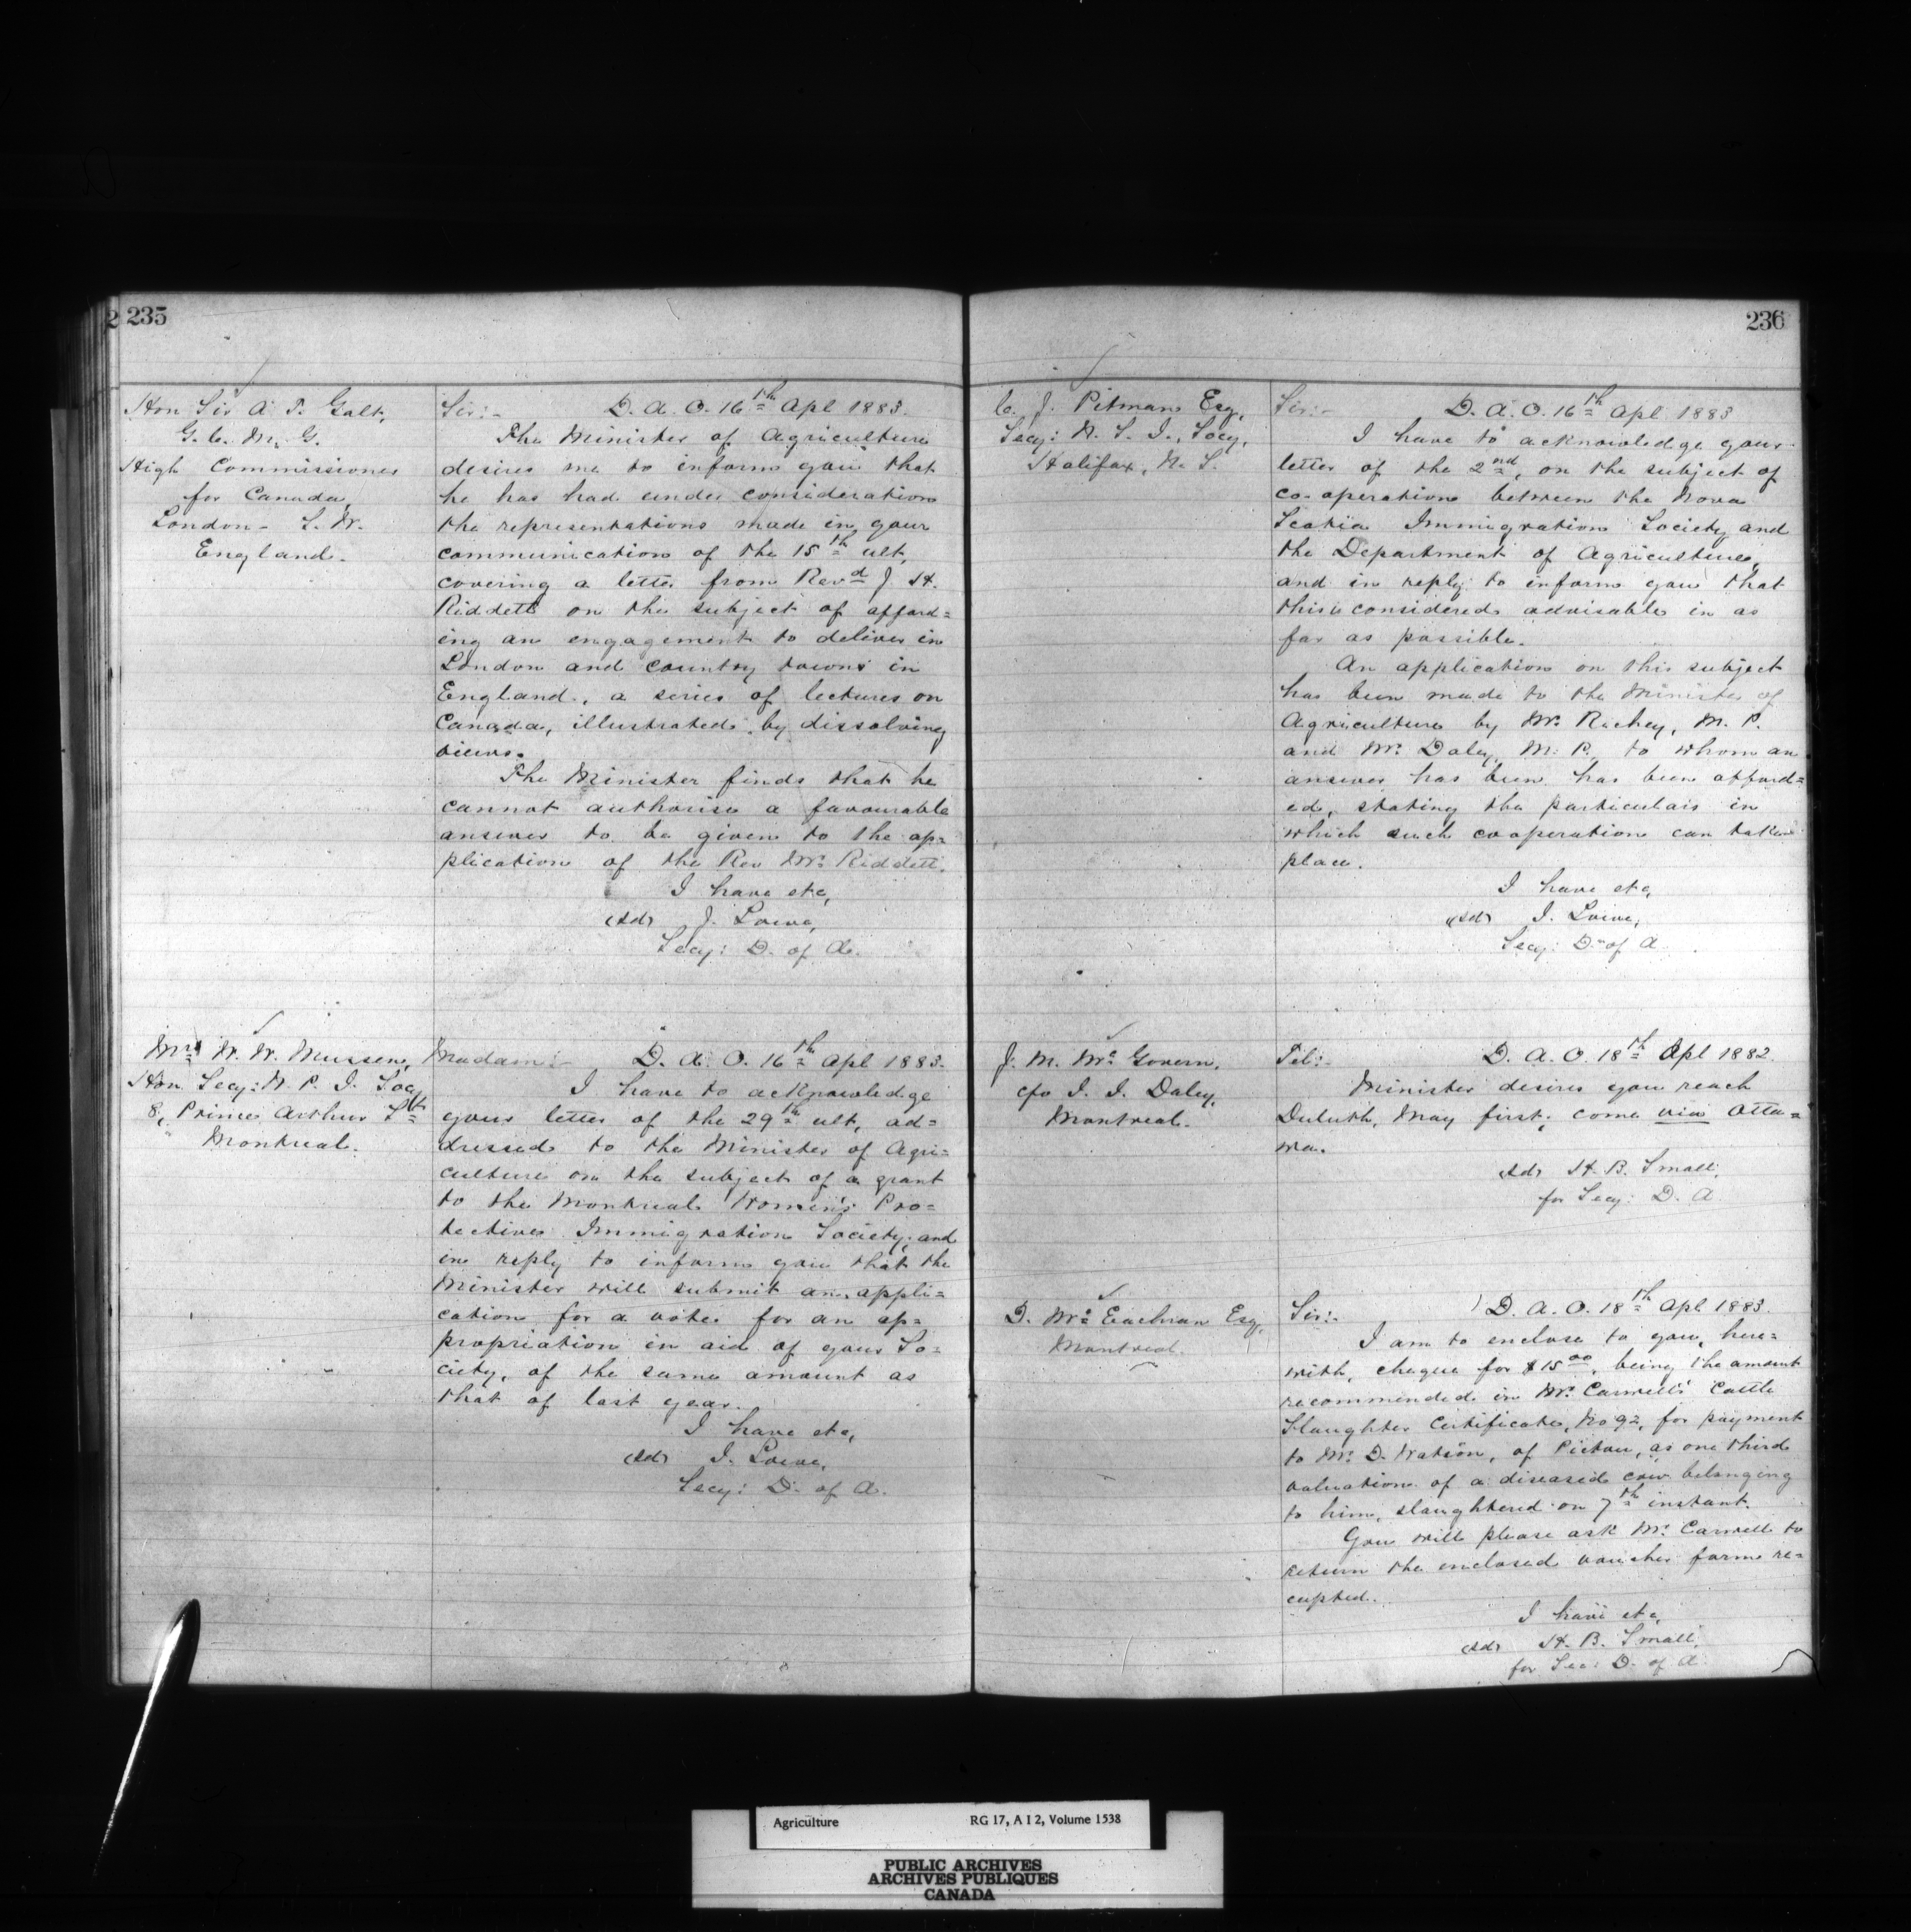 235
Hon Sir A. T. Galt,
G. C. M. G.
High Commissioner
for Canada,
London - S. W.
England.
Sir:- D. A. O. 16th Apl 1883.
The Minister of Agriculture
desires me to inform you that
he has had under consideration
the representations made in your
communication of the 15th ult,
covering a letter from Revd J. H.
Riddett on the subject of afford=
ing an engagement to deliver in
London and country towns in
England, a series of lectures on
Canada, illustrated by dissolving
views.
The Minister finds that he
cannot authorise a favourable
answer to be given to the ap=
plication of the Rev Mr. Riddett.
I have etc,
(sd) J. Lowe,
Secy: D. of A.
Mrs W. W. Mussen,
Hon. Secy: W. P. I. Socy
8, Prince Arthur St
Montreal.
Madam:- D. A. O. 16th Apl 1883.
I have to acknowledge
your letter of the 29th ult, ad=
dressed to the Minister of Agri=
culture on the subject of a grant
to the Montreal Women's Pro=
tective Immigration Society, and
in reply to inform you that the
Minister will submit an appli=
cation for a vote for an ap=
propriation in aid of your So=
ciety, of the same amount as
that of last year.
I have etc,
(sd) J. Lowe,
Secy: D. of A.
236
C. J. Pitman Esq,
Secy: N. S. I. Socy,
Halifax, N. S.
Sir:- D. A. O. 16th Apl 1883
I have to acknowledge your
letter of the 2nd, on the subject of
co-operation between the Nova
Scotia Immigration Society and
the Department of Agriculture,
and in reply to inform you that
this is considered advisable in as
far as possible.
An application on this subject
has been made to the Minister of
Agriculture by Mr. Richey, M. P.
and Mr. Daley, M. P., to whom an
answer has been has been afford=
ed, stating the particulars in
which such cooperation can take
place.
I have etc,
(sd) J. Lowe,
Secy: D. of A.
J. M. McGovern,
c/o J. J. Daley,
Montreal.
Tel:- D. A. O. 18th Apl 1882.
Minister desires you reach
Duluth, May first, come via Otta=
wa.
(sd) H. B. Small,
for Secy: D. A.
D. McEachran Esq,
Montreal.
Sir:- D. A. O. 18th Apl 1883.
I am to enclose to you, here=
with, cheque for $15 00, being the amount
recommended in Mr. Carwell's Cattle
Slaughter Certificate, No 92, for payment
to Mr. D. Watson, of Pictou, as one third
valuation of a diseased cow belonging
to him, slaughtered on 7th instant.
You will please ask Mr. Carwell to
return the enclosed voucher form re=
cepted.
I have etc,
(sd) H. B. Small,
for Sec: D. of A.
Agriculture RG 17, A I 2, Volume 1538
PUBLIC ARCHIVES
ARCHIVES PUBLIQUES
CANADA